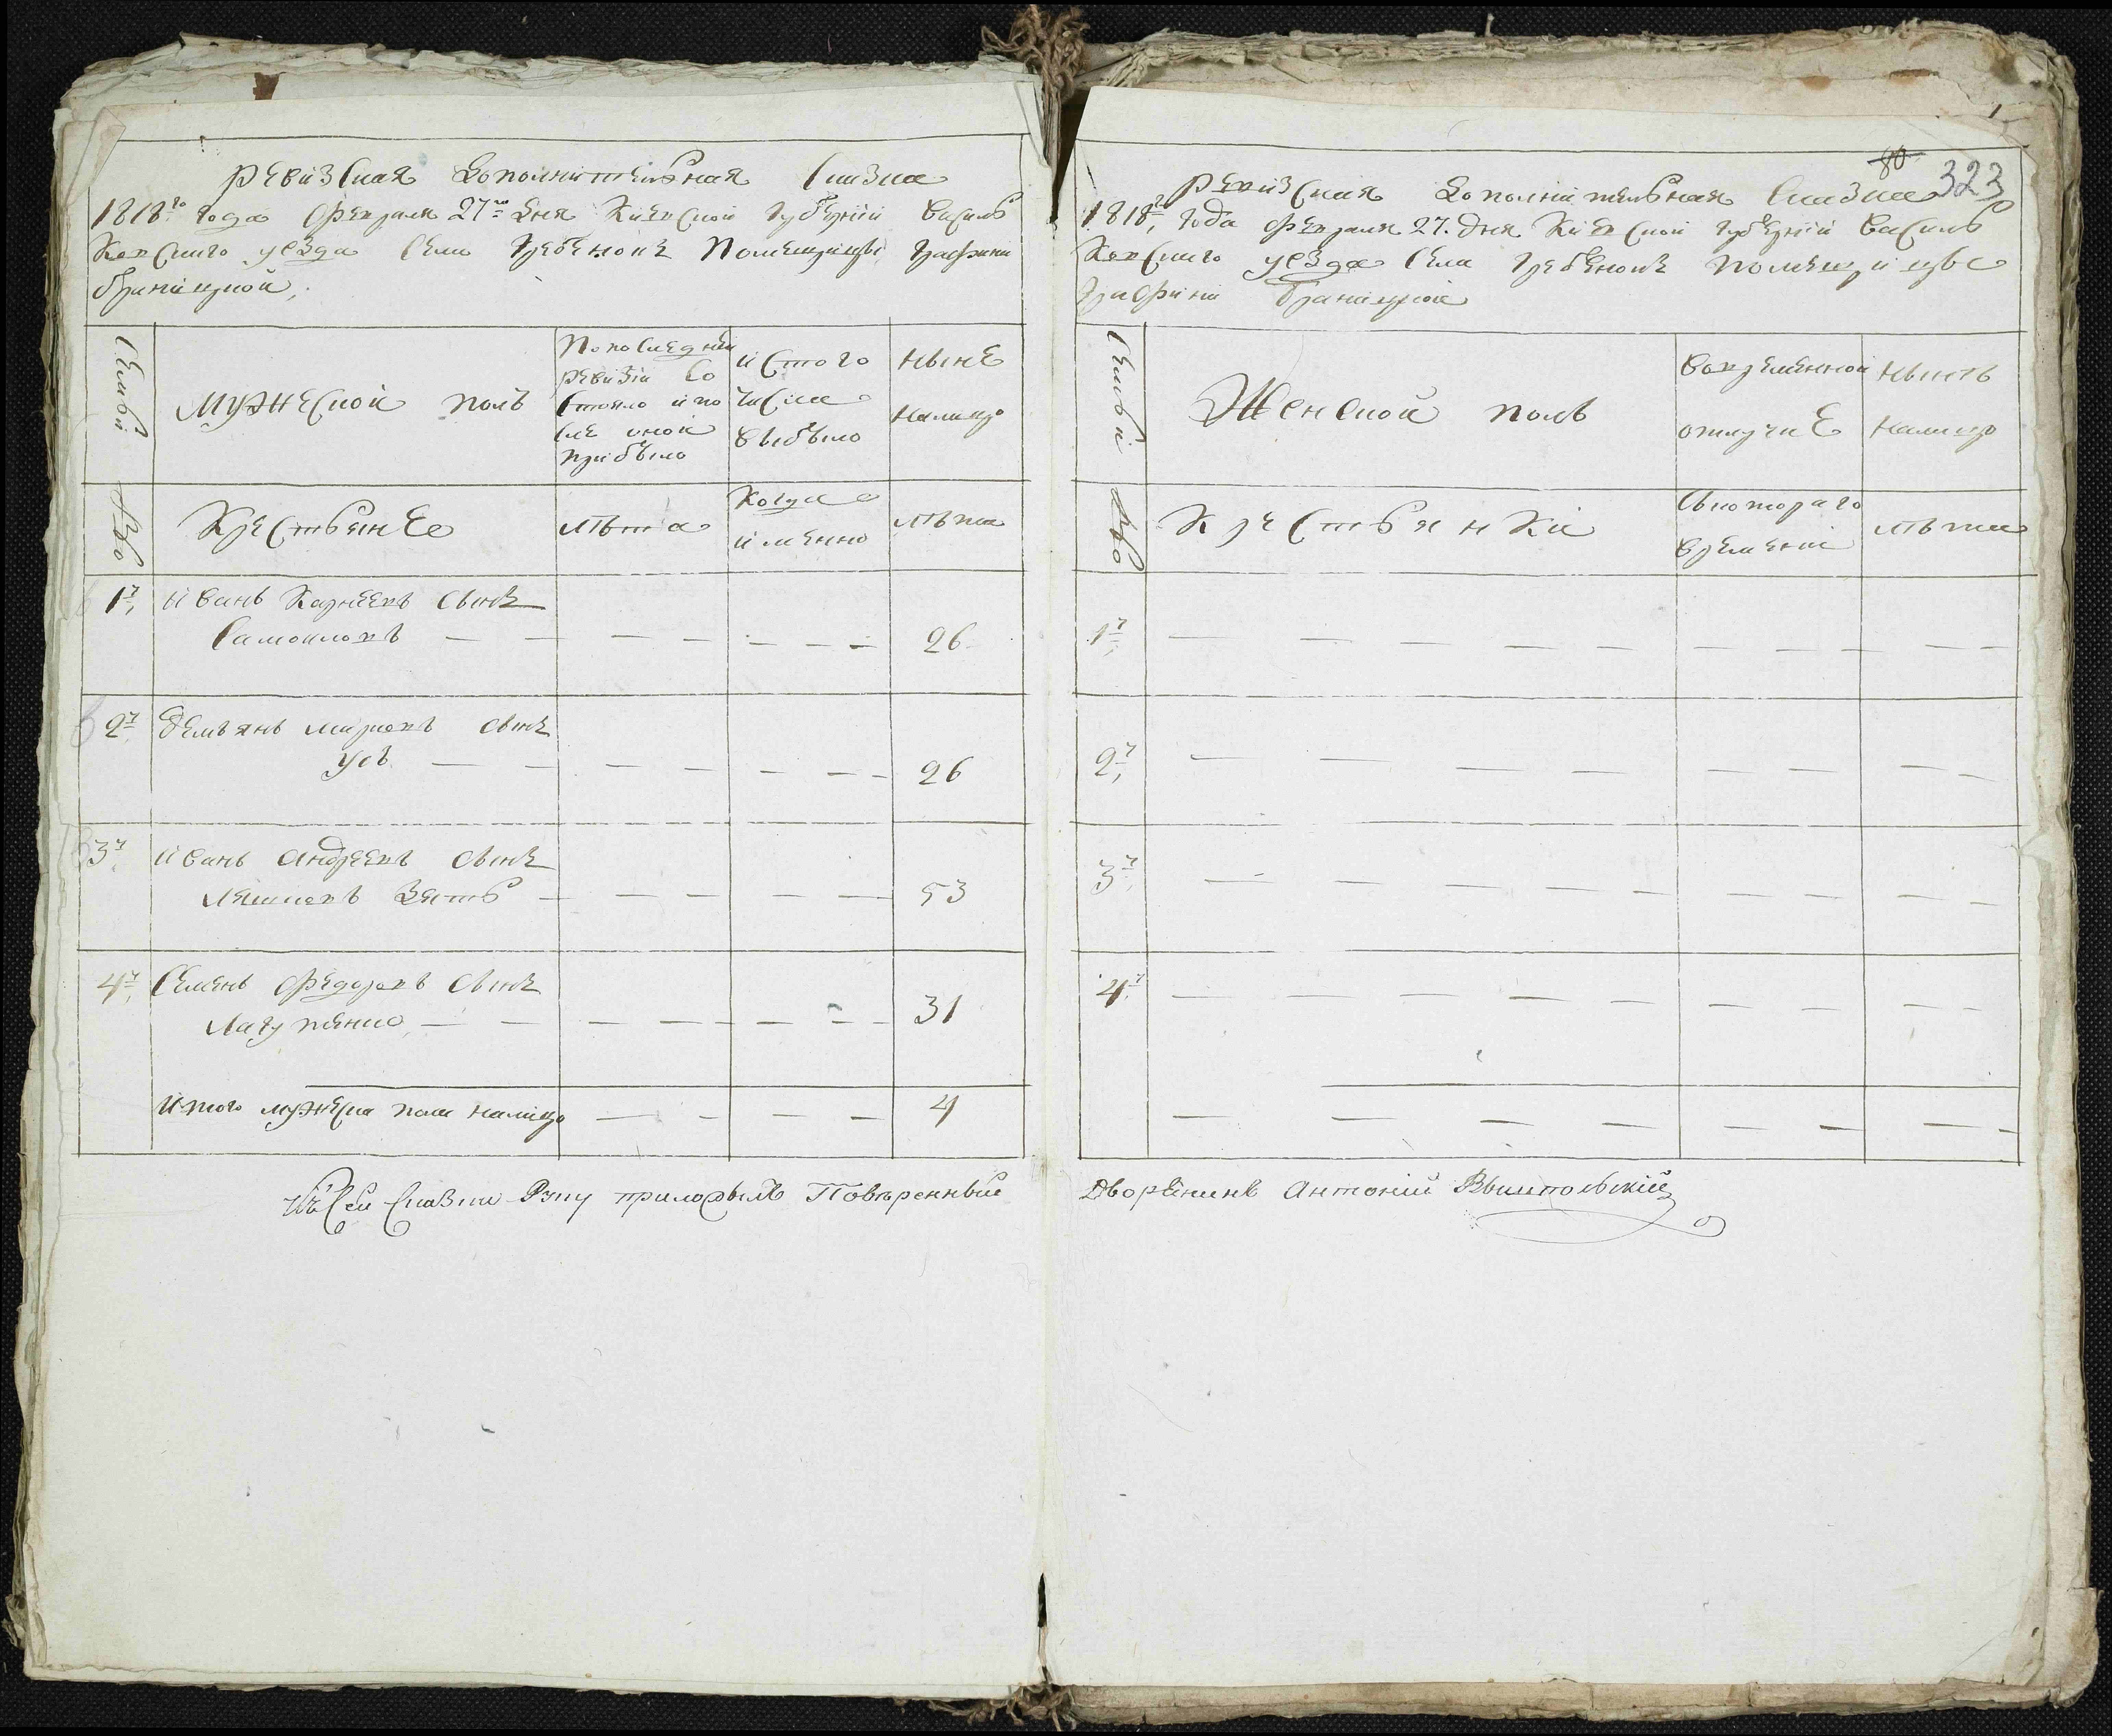 Ревизская дополнительная сказка
1818го года февраля 27го дня Киевской губернии Василь
ковского уезда села Гребенокъ Помещицы Графини
Браницкой,
Семьи
Мужеской полъ
По последней
ревизіи со
стояло и по
сле оной
прибыло
И стого
числа
выбыло
ныне
налицо
№во
Крестьяне
лѣта
Когда
именно
лѣта
1й, Иванъ Карнеевъ сынъ
Самойловъ — — — — — — — 26
2й Демьянъ Марковъ сынъ
Усъ — — — — — — — 26
3й Иванъ Андреевъ сынъ
Ляшковъ зять — — — — — — 53
4й, Семенъ Федоровъ сынъ
— — — — — — — 31
Итого мужеска пола налицо — — — — 4
Къ сей сказки руку приложылъ Повѣренный
80
323
Ревизская дополнительная сказка
1818го, года февраля 27. дня Киевской губернии Василь
ковского уезда села Гребенокъ помещицы
Графини Браницкой
Семьи
Женской полъ
Вовременной
отлучке
Нынть
налицо
№во
Крестьянки
Скотораго
времени
лѣта
1й, — — — — — — — — — —
2й, — — — — — — — —
3й, — — — — — — — — —
4й — — — — — — — — —
— — — — — — — —
Дворянинъ Антоній